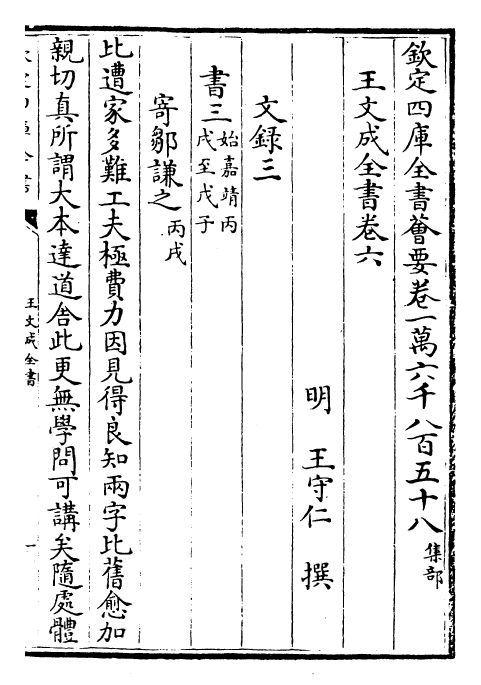 欽定四庫全書薈要卷一萬六千八百五十八 集部
王文成全書卷六
明 王守仁 撰
文錄三
書三 始嘉靖丙戌至戊子
寄鄒謙之 丙戌
比遭家多難工夫極費力因見得良知兩字比舊愈加
親切真所謂大本達道舍此更無學問可講矣隨處體
王文成全書
一